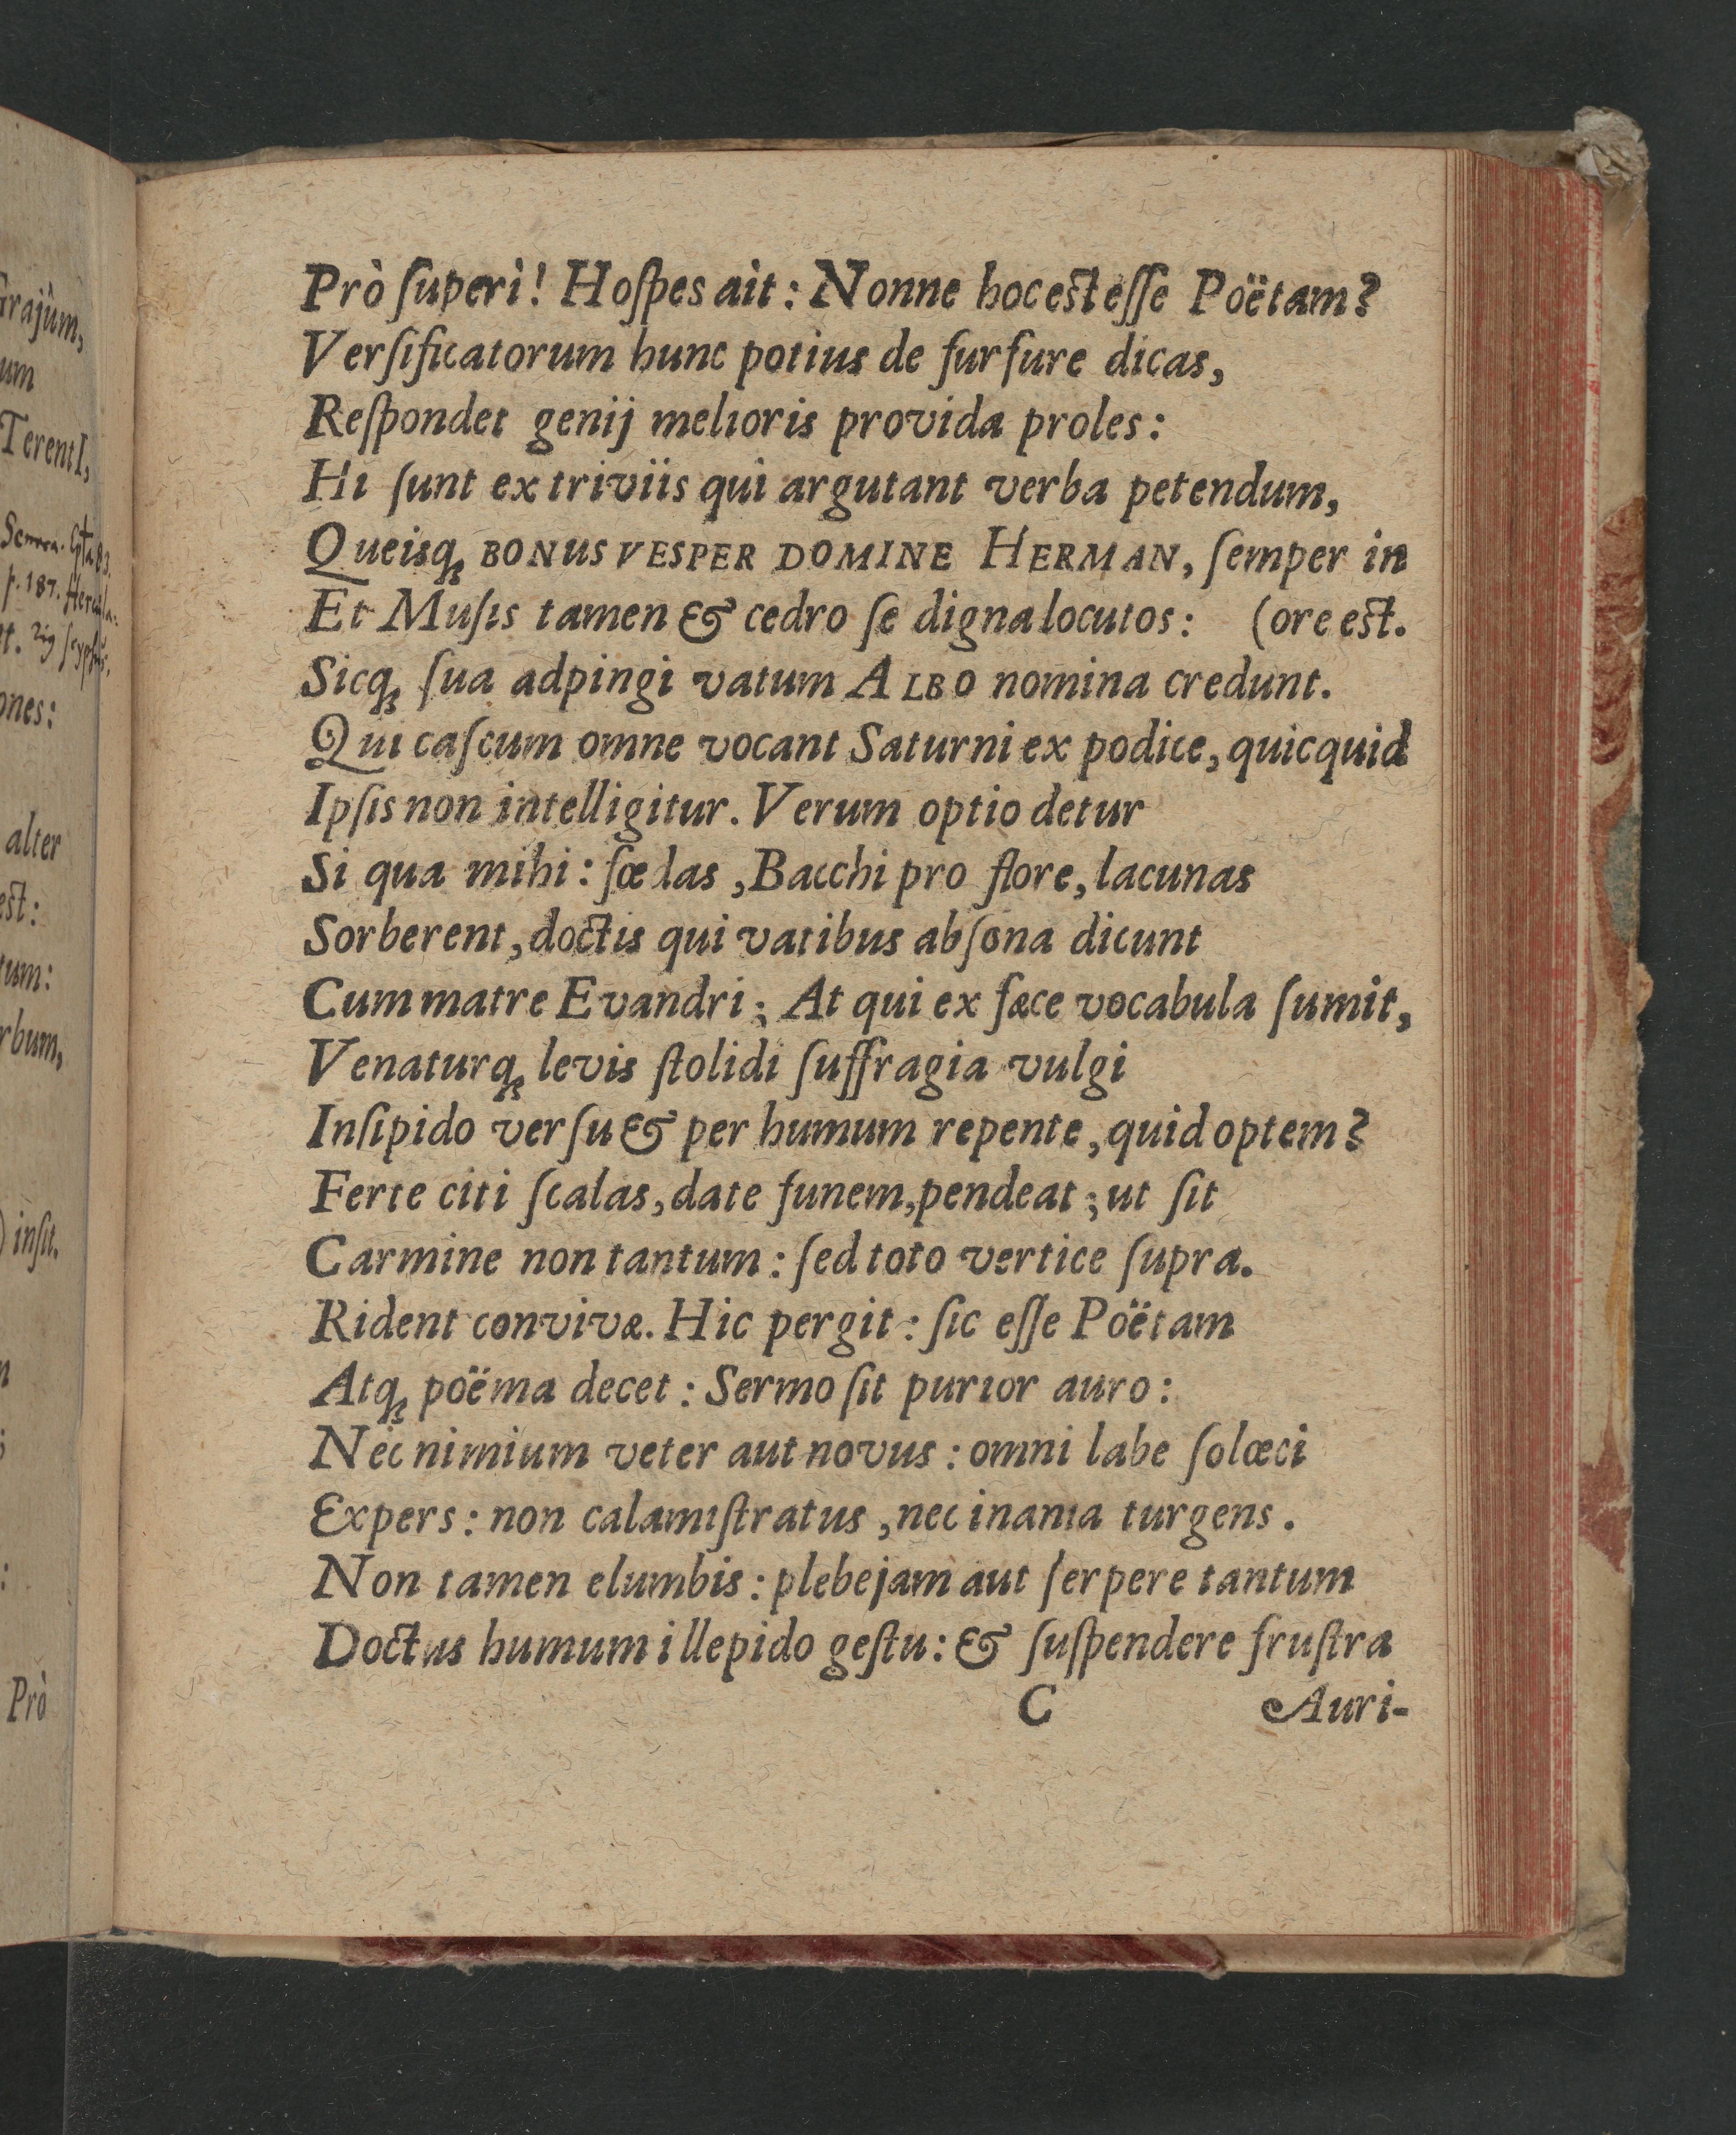 Prò ſuperi! Hoſpes ait: Nonne hoc est eſſe Poëtam?
Verſificatorum hunc potius de furfure dicas,
Reſpondet genij melioris provida proles:
Hi ſunt ex triviis qui argutant verba petendum,
Queisq; BONUS VESPER DOMINE HERMAN, ſemper in
Et Muſis tamen & cedro ſe digna locutos: (ore est.
Sicq; ſua adpingi vatum ALBO nomina credunt.
Qui caſcum omne vocant Saturni ex podice, quicquid
Ipſis non intelligitur. Verum optio detur
Si qua mihi: fœdas, Bacchi pro flore, lacunas
Sorberent, doctis qui vatibus abſona dicunt
Cum matre Evandri; At qui ex fæce vocabula ſumit,
Venaturq; levis ſtolidi ſuffragia vulgi
Inſipido verſu & per humum repente, quid optem?
Ferte citi ſcalas, date funem, pendeat; ut ſit
Carmine non tantum: ſed toto vertice ſupra.
Rident convivæ. Hic pergit: ſic eſſe Poëtam
Atq; poëma decet: Sermo ſit purior auro:
Nec nimium veter aut novus: omni labe ſolœci
Expers: non calamiſtratus, nec inania turgens.
Non tamen elumbis: plebejam aut ſerpere tantum
Doctus humum illepido geſtu: & ſuſpendere fruſtra
C Auri-
Grajûm,
um
TerentI,
ones:
alter
est:
tum:
rbum,
) inſit.
Prò